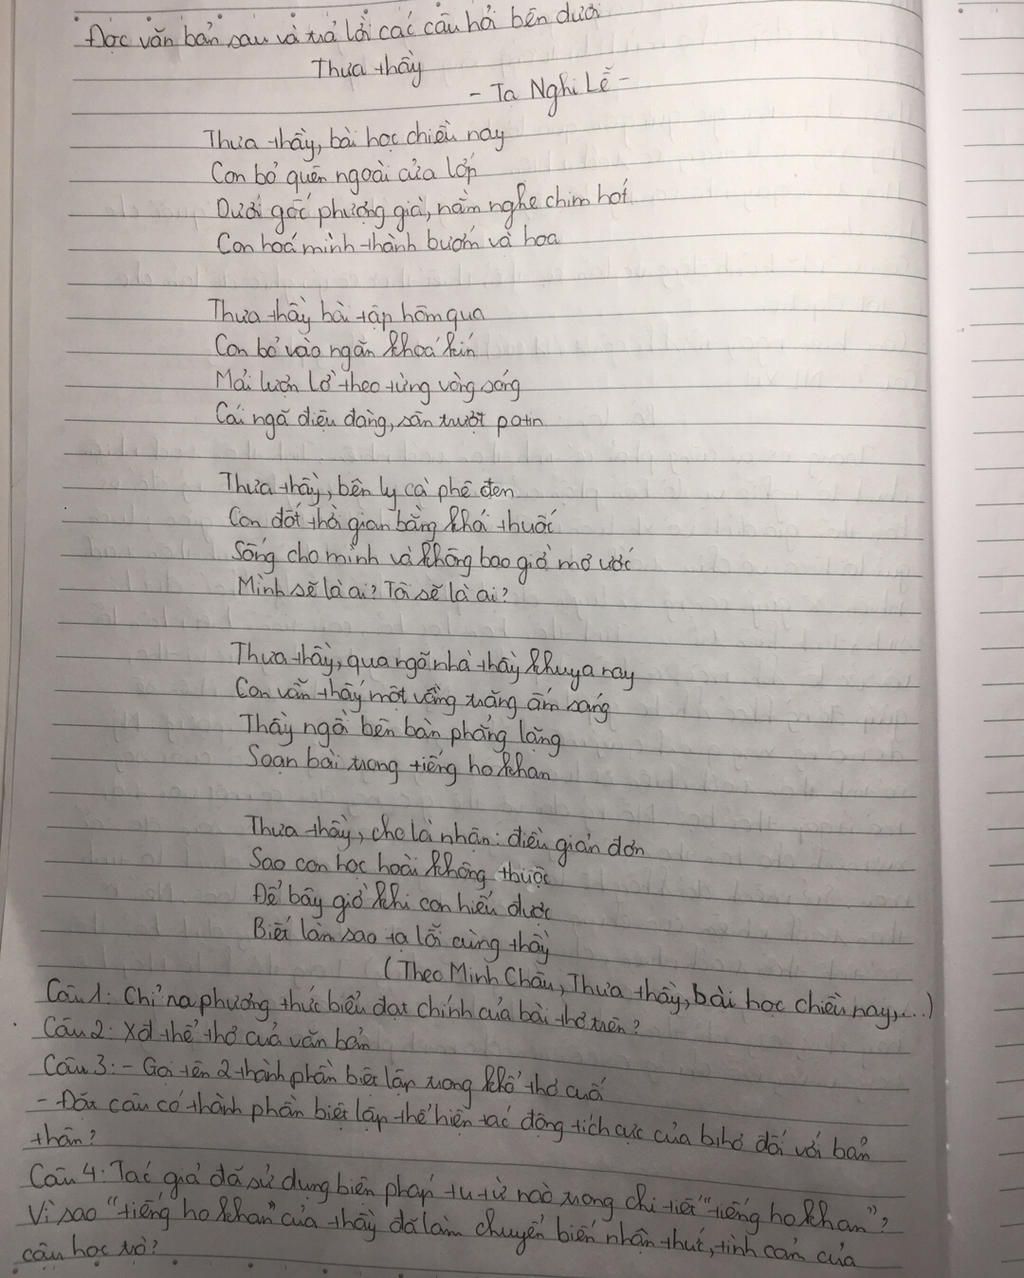 Đọc văn bản sau và trả lời các câu hỏi bên dưới
Thưa thầy
- Tạ Nghi Lễ -
Thưa thầy, bài học chiều nay
Con bỏ quên ngoài cửa lớp
Dưới gốc phượng già, nằm nghe chim hót
Con hoá mình thành bướm và hoa
Thưa thầy bài tập hôm qua
Con bỏ vào ngăn khoá kín
Mải lượn lờ theo từng vòng sóng
Cái ngã điệu đàng, sân trượt patin
Thưa thầy, bên ly cà phê đen
Con đốt thời gian bằng khói thuốc
Sống cho mình và không bao giờ mơ ước
Mình sẽ là ai? Tôi sẽ là ai?
Thưa thầy, qua ngõ nhà thầy khuya nay
Con vẫn thấy một vầng trăng ấm sáng
Thầy ngồi bên bàn phẳng lặng
Soạn bài trong tiếng ho khan
Thưa thầy, cho là nhân: điều giản đơn
Sao con học hoài không thuộc
Để bây giờ khi con hiểu được
Biết làm sao tạ lỗi cùng thầy
(Theo Minh Châu, Thưa thầy, bài học chiều nay,...)
Câu 1: Chỉ ra phương thức biểu đạt chính của bài thơ trên?
Câu 2: Xđ thể thơ của văn bản
Câu 3: - Gọi tên 2 thành phần biệt lập trong khổ thơ cuối
- Đặt câu có thành phần biệt lập thể hiện tác động tích cực của b.thơ đối với bản
thân?
Câu 4: Tác giả đã sử dụng biện pháp tu từ nào trong chi tiết "tiếng ho khan"?
Vì sao "tiếng ho khan" của thầy đã làm chuyển biến nhận thức, tình cảm của
cậu học trò?